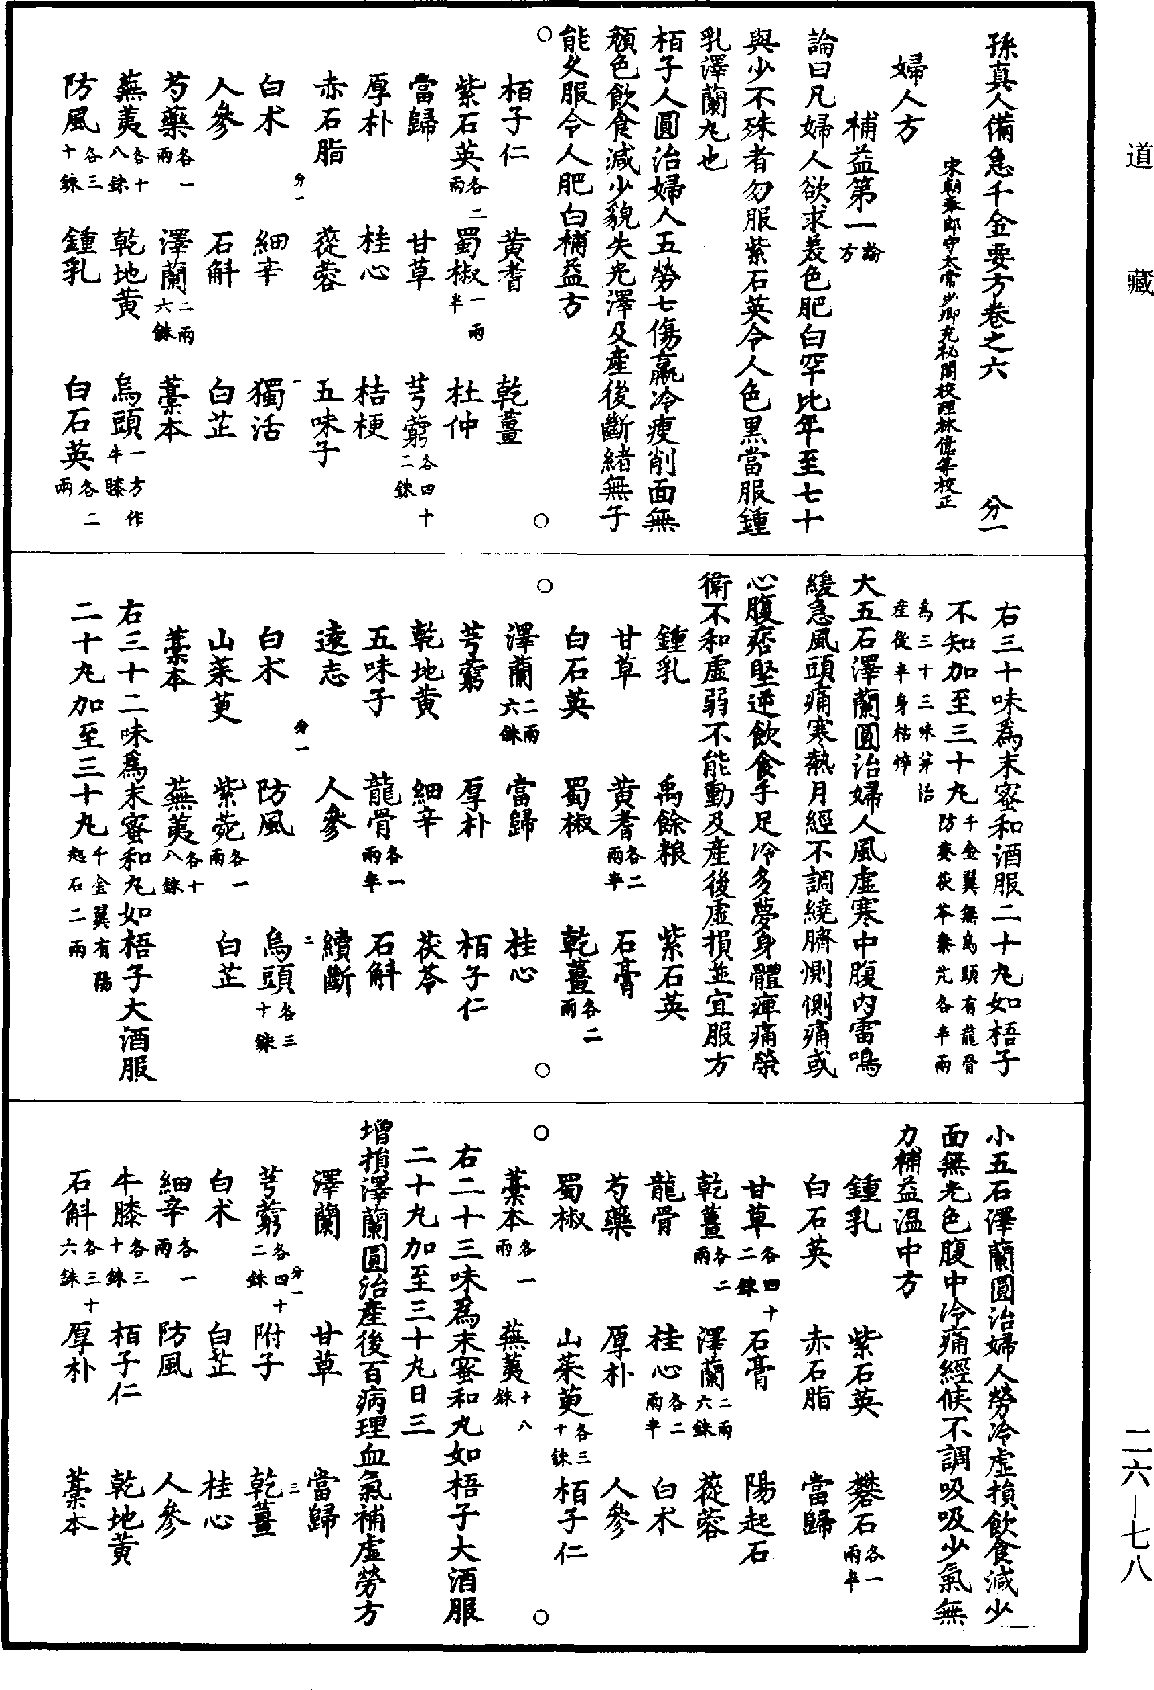 道藏
孫真人備急千金要方卷之六　分一
宋朝奉郎守太常少卿充秘閣校理林億等校正
婦人方
補益第一論方
論曰凡婦人欲求美色肥白罕比年至七十
與少不殊者勿服紫石英令人色黑當服鍾
乳澤蘭丸也
栢子人圓治婦人五勞七傷羸冷瘦削面無
顏色飲食減少貌失光澤及產後斷緒無子
能久服令人肥白補益方
栢子仁　黃耆　乾薑
紫石英各二兩　蜀椒一兩半　杜仲
當歸　甘草　芎藭各四十二銖
厚朴　桂心　桔梗
赤石脂　蓯蓉　五味子
分一　一
白朮　細辛　獨活
人參　石斛　白芷
芍藥各一兩　澤蘭二兩六銖　藁本
蕪荑各十八銖　乾地黃　烏頭一方作牛膝
防風各三十銖　鍾乳　白石英各二兩
右三十味為末蜜和酒服二十丸如梧子
不知加至三十丸千金翼無烏頭有龍骨防葵茯苓秦艽各半兩
為三十三味并治產後半身枯悴
大五石澤蘭圓治婦人風虛寒中腹內雷鳴
緩急風頭痛寒熱月經不調繞臍惻惻痛或
心腹痞堅逆飲食手足冷多夢身體痺痛榮
衛不和虛弱不能動及產後虛損並宜服方
鍾乳　禹餘粮　紫石英
甘草　黃耆各二兩半　石膏
白石英　蜀椒　乾薑各二兩
澤蘭二兩六銖　當歸　桂心
芎藭　厚朴　栢子仁
乾地黃　細辛　茯苓
五味子　龍骨各一兩半　石斛
遠志　人參　續斷
分一　二
白朮　防風　烏頭各三十銖
山茱萸　紫菀各一兩　白芷
藁本　蕪荑各十八銖
右三十二味為末蜜和丸如梧子大酒服
二十丸加至三十丸千金翼有陽起石二兩
小五石澤蘭圓治婦人勞冷虛損飲食減少
面無光色腹中冷痛經候不調吸吸少氣無
力補益溫中方
鍾乳　紫石英　礬石各一兩半
白石英　赤石脂　當歸
甘草各四十二銖　石膏　陽起石
乾薑各二兩　澤蘭二兩六銖　蓯蓉
龍骨　桂心各二兩半　白朮
芍藥　厚朴　人參
蜀椒　山茱萸各三十銖　栢子仁
藁本各一兩　蕪荑十八銖
右二十三味為末蜜和丸如梧子大酒服
二十丸加至三十丸日三
增損澤蘭圓治產後百病理血氣補虛勞方
澤蘭　甘草　當歸
分一　三
芎藭各四十二銖　附子　乾薑
白朮　白芷　桂心
細辛各一兩　防風　人參
牛膝各三十銖　栢子仁　乾地黃
石斛各三十六銖　厚朴　藁本
二六—七八